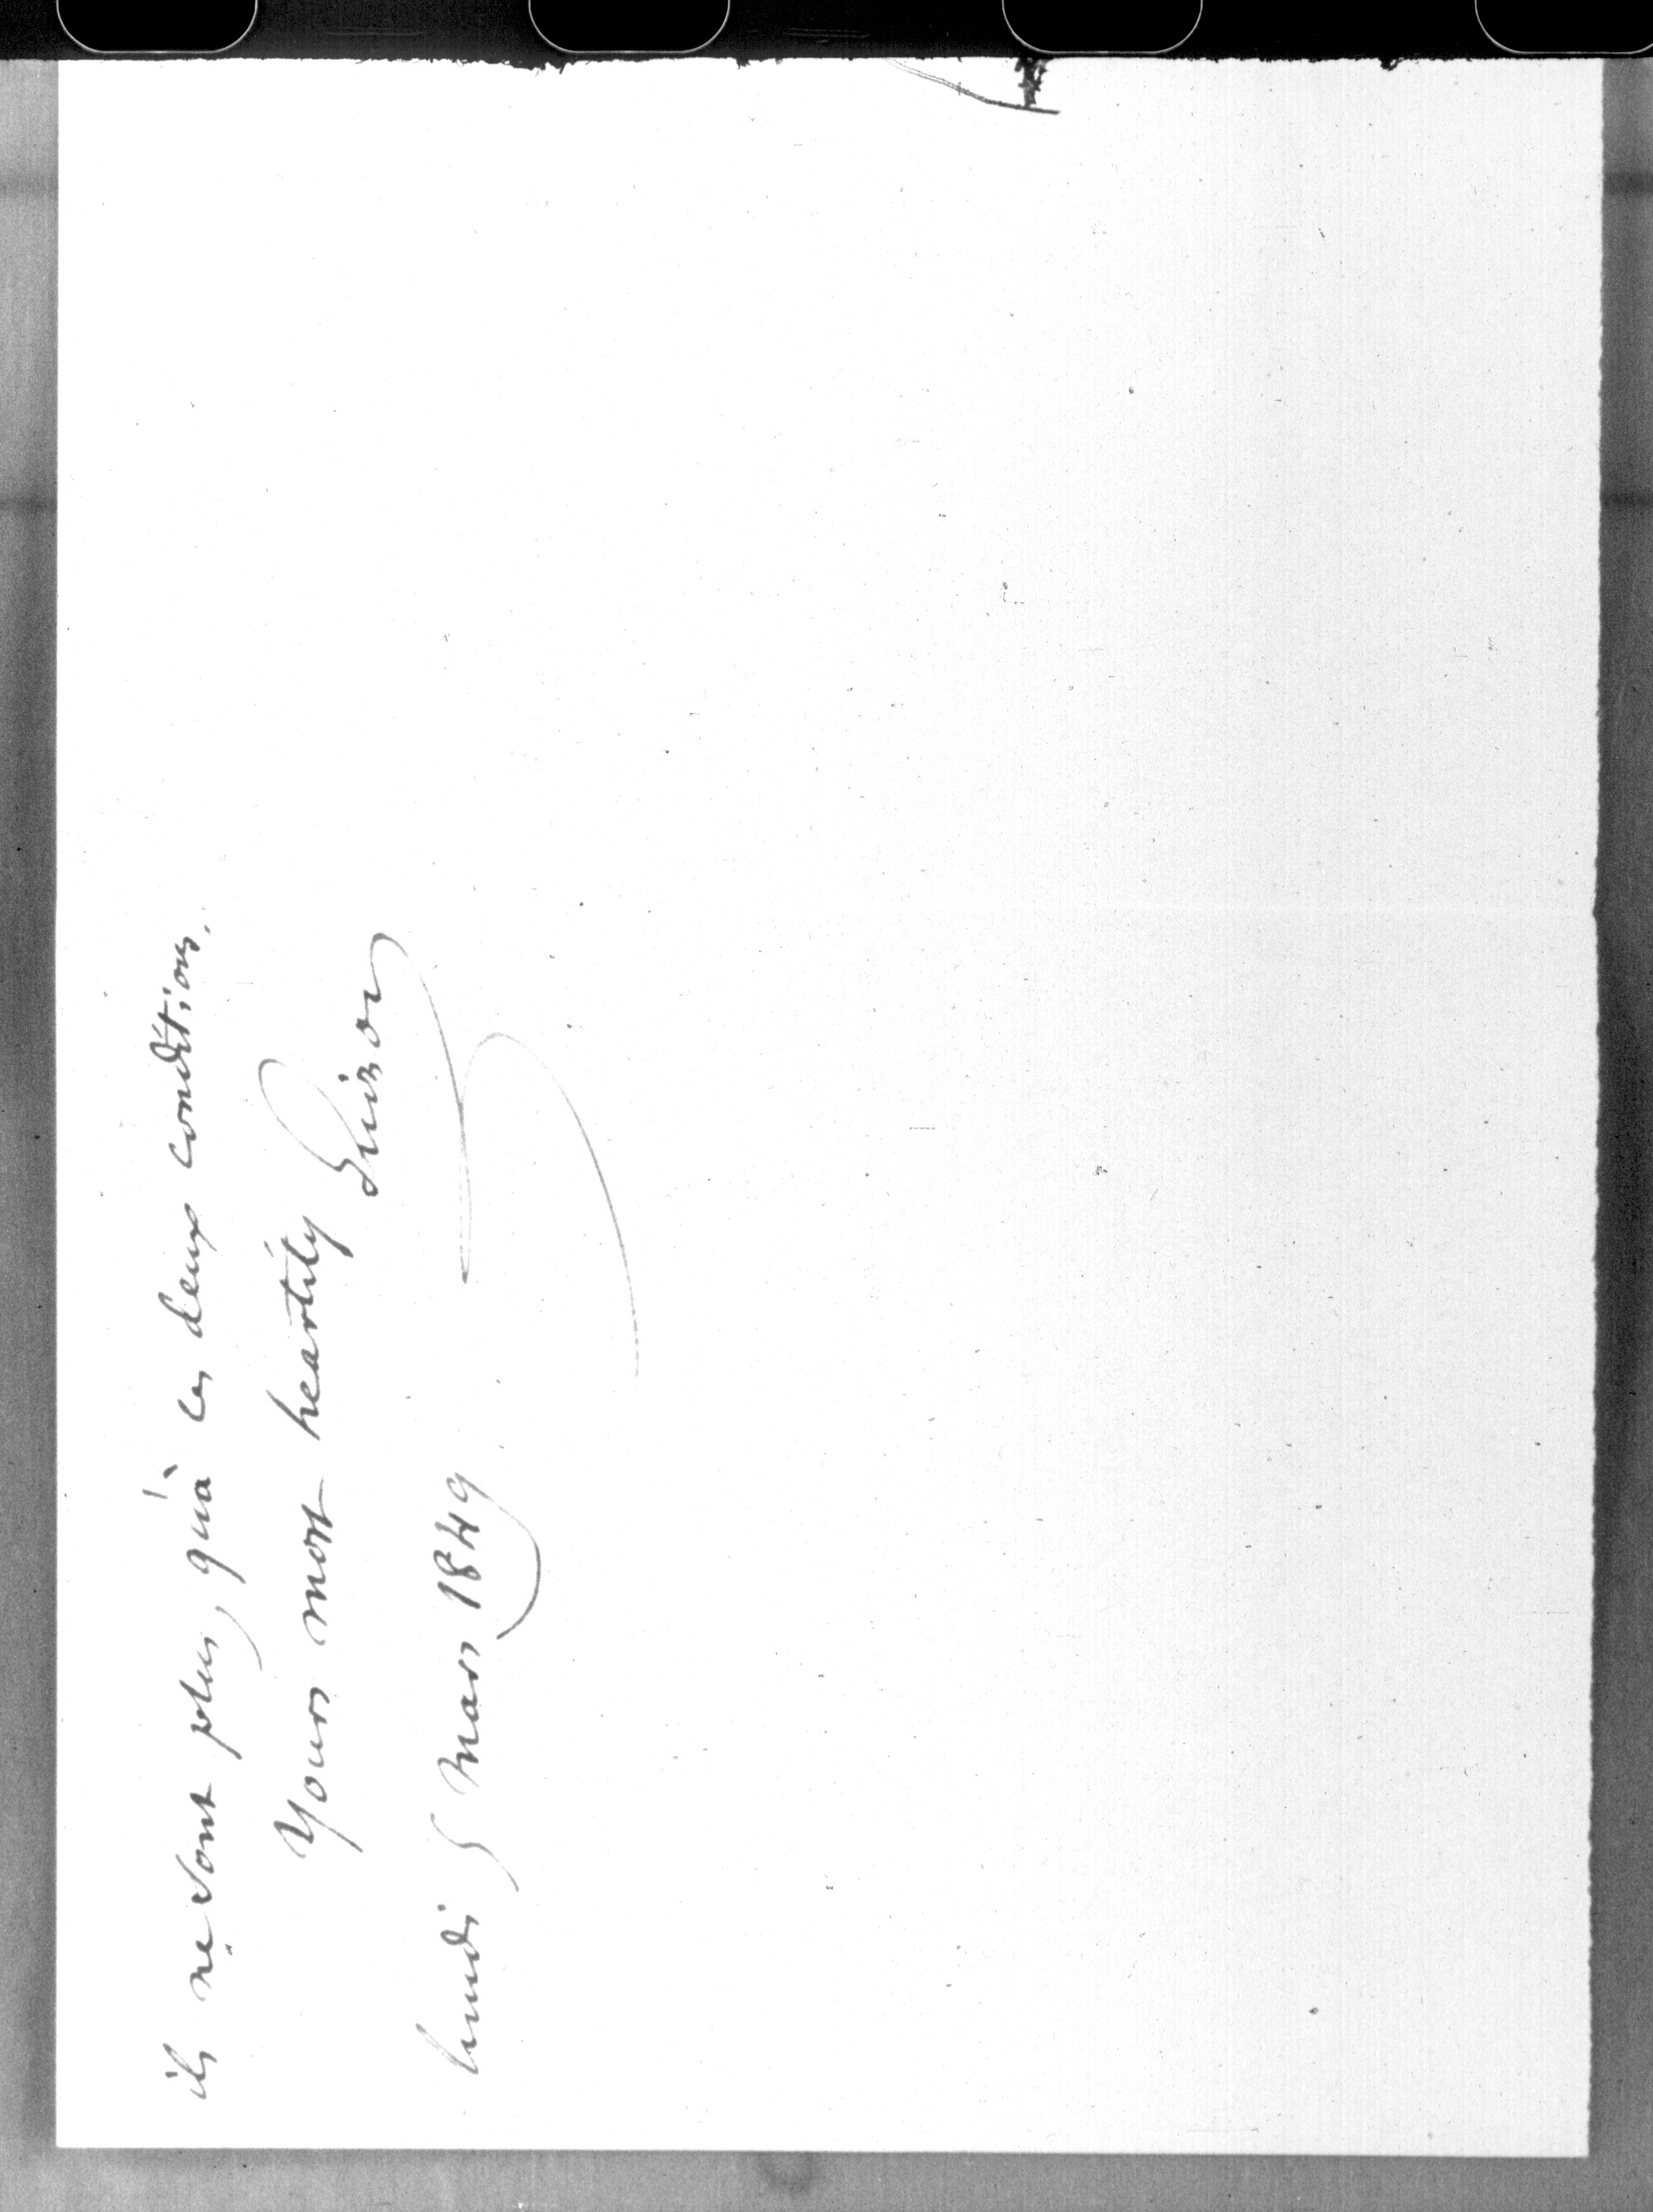 ils ne sont plus, qu'à ces deux conditions.
Yours most heartily
Guizot
lundi 5 Mars 1849